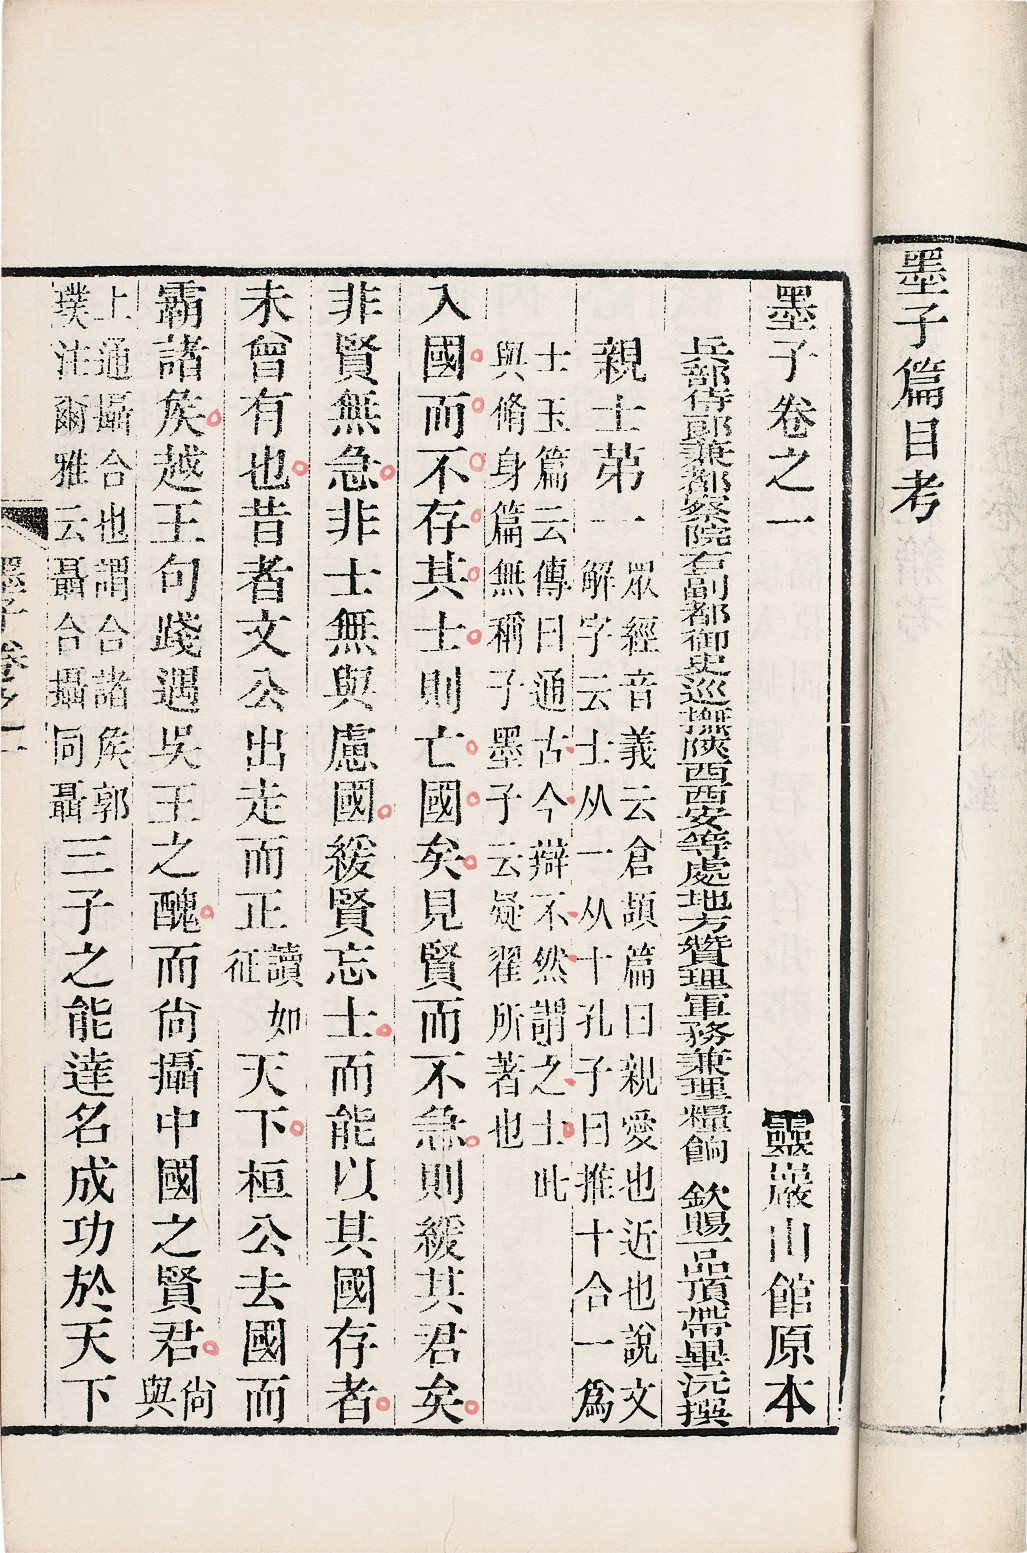 墨子篇目考
墨子卷之一 靈巖山館原本
兵部侍郎兼都察院右副都御史巡撫陝西西安等處地方贊理軍務兼理糧餉 欽賜一品頂帶畢沅撰
親士第一 眾經音義云倉頡篇曰親愛也近也說文
解字云士从一从十孔子曰推十合一爲
士玉篇云傳曰通古今辯不然謂之士此
與脩身篇無稱子墨子云疑翟所著也
入國而不存其士則亡國矣見賢而不急則緩其君矣
非賢無急非士無與慮國緩賢忘士而能以其國存者
未曾有也昔者文公出走而正讀如征天下桓公去國而
霸諸矦越王句踐遇吳王之醜而尙攝中國之賢君尙與
上通攝合也謂合諸矦郭璞注爾雅云聶合攝同聶三子之能達名成功於天下
墨子卷之一 一